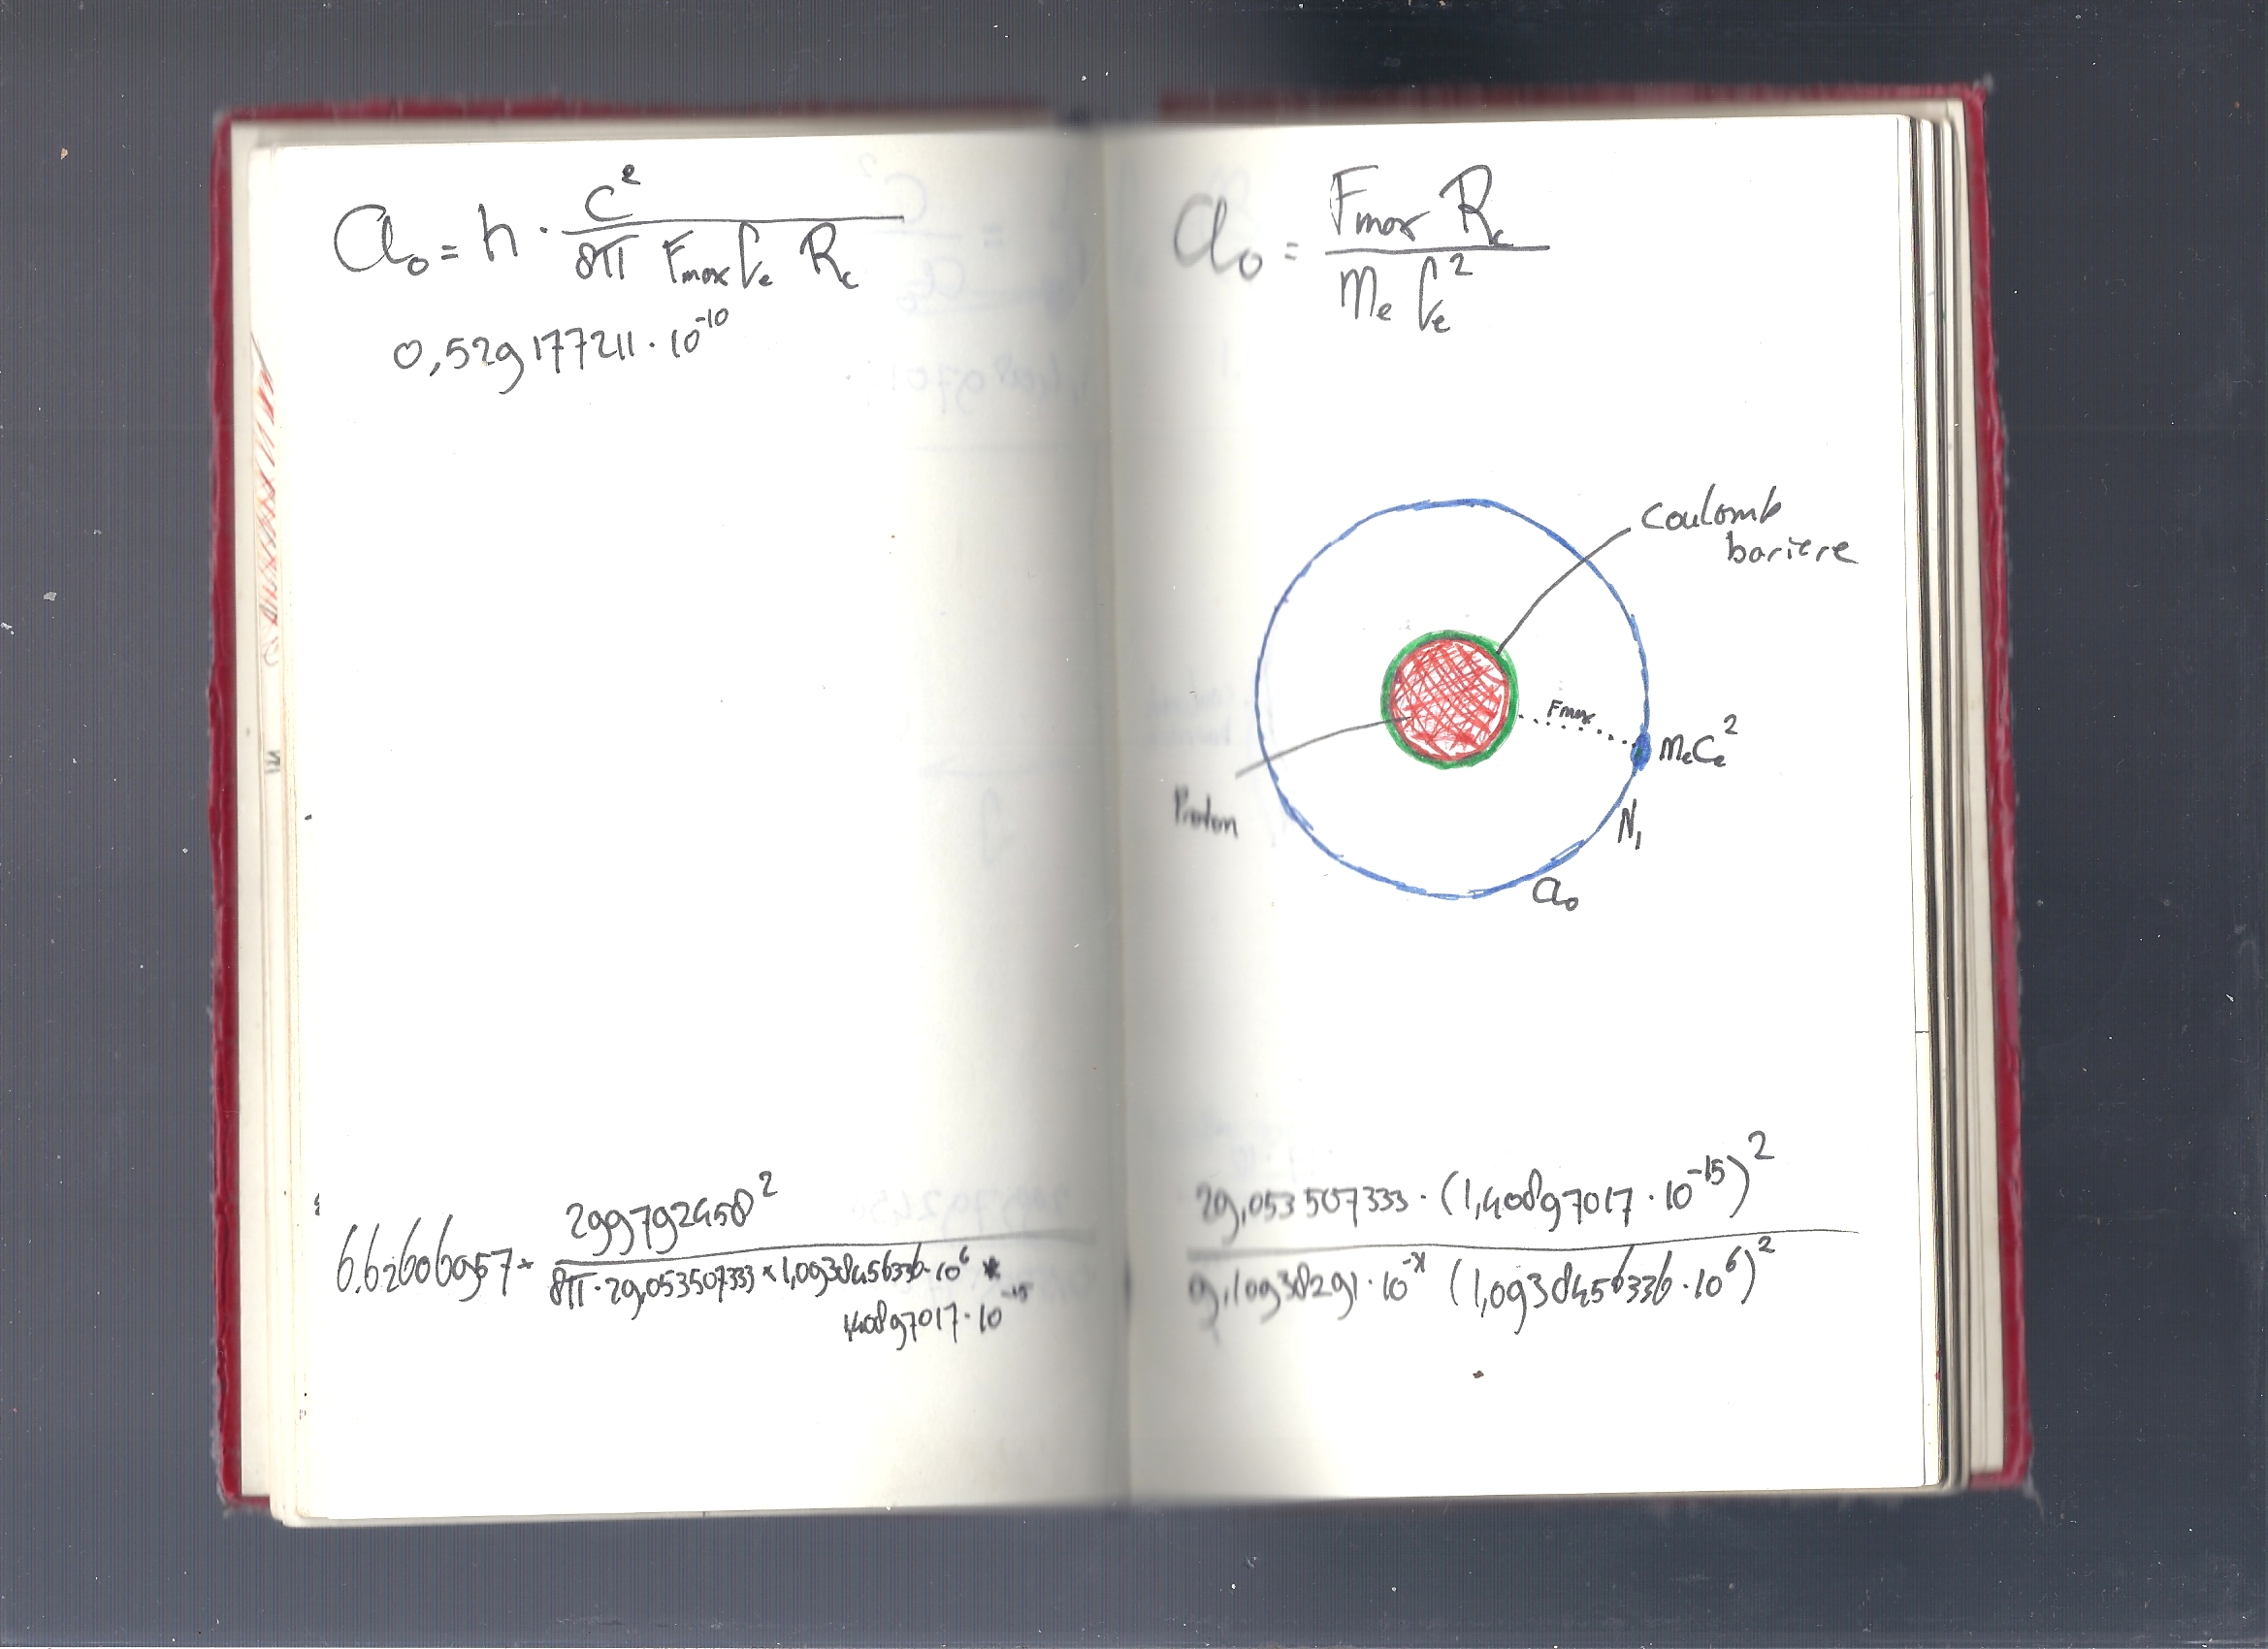 a₀ = h · c² / (8π Fmax Ce Rc)
0,529177211 · 10⁻¹⁰
6.62606957 * 299792458² / (8π · 29,053507333 * 1,0938456336 · 10⁶ *
1,40897017 · 10⁻¹⁵)
a₀ = Fmax Rc / (Me Ce²)
Coulomb
bariere
Fmax
MeCe²
Proton
N₁
a₀
29,053507333 · (1,40897017 · 10⁻¹⁵)²
9,10938291 · 10⁻³¹ (1,0938456336 · 10⁶)²